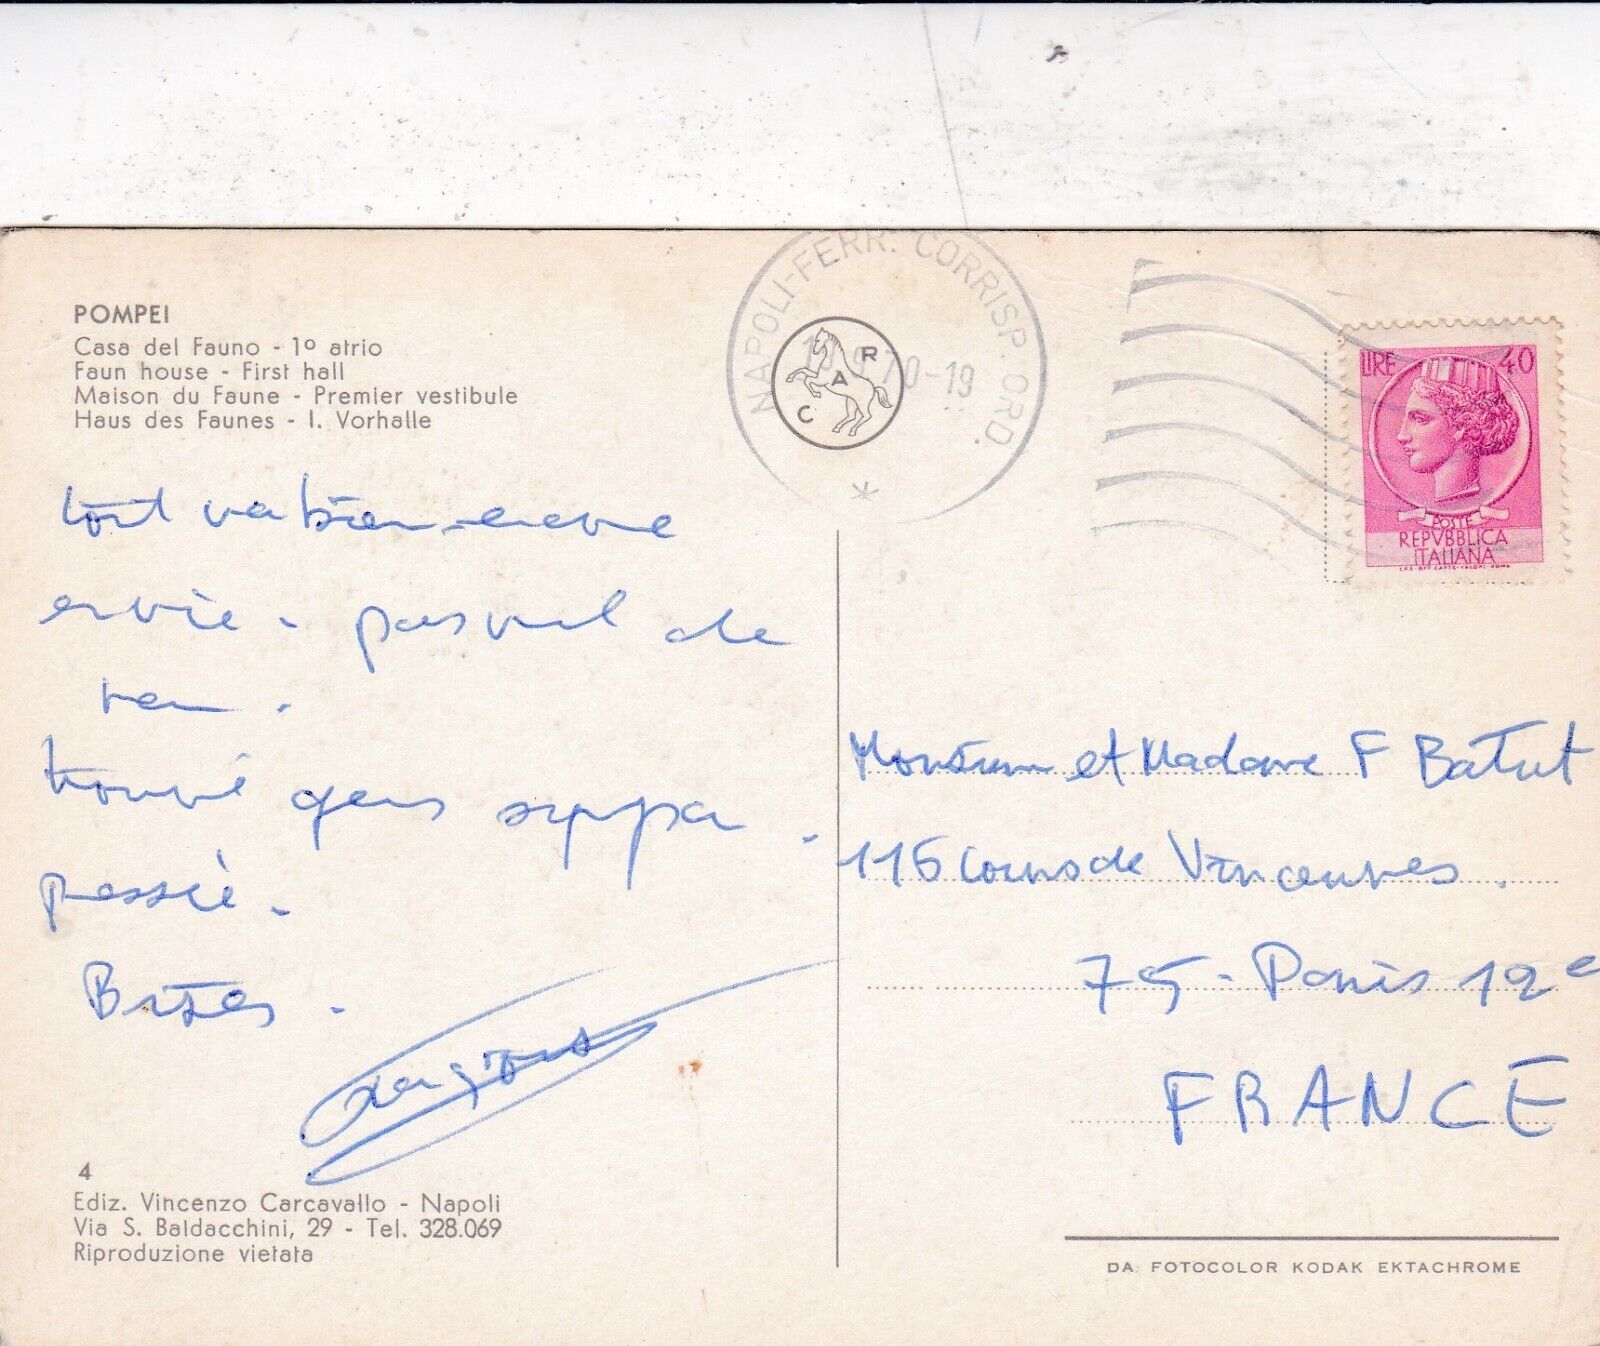 POMPEI
Casa del Fauno - 1º atrio
Faun house - First hall
Maison du Faune - Premier vestibule
Haus des Faunes - I. Vorhalle
tout va bien
envie - pas vul de
trouvé gens sympa -
Bises -
4
Ediz. Vincenzo Carcavallo - Napoli
Via S. Baldacchini, 29 - Tel. 328.069
Riproduzione vietata
NAPOLI-FERR. CORRISP. ORD.
70-19
C A R
LIRE 40
POSTE
REPVBBLICA
ITALIANA
Monsieur et Madame F Batut
116 cours de Vincennes.
75 - Paris 12e
FRANCE
DA FOTOCOLOR KODAK EKTACHROME